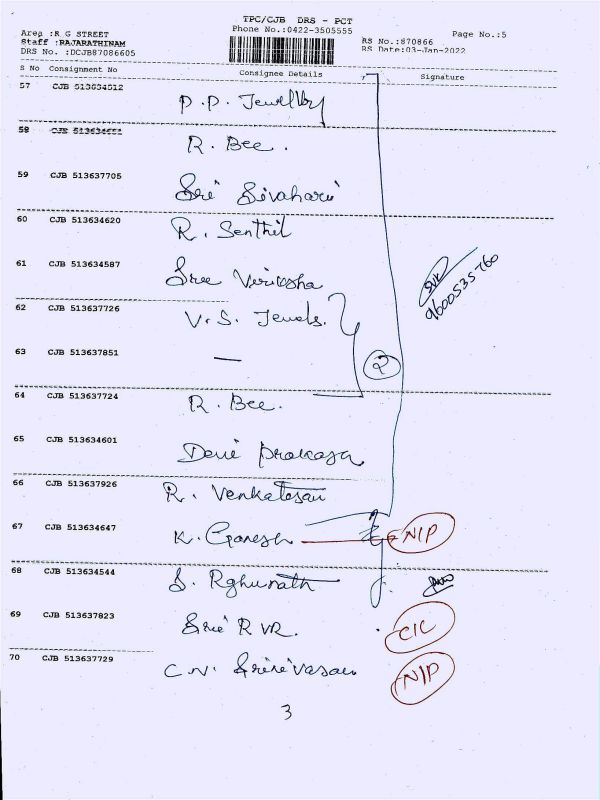 TPC/CJB DRS - PCT
Phone No.:0422-3505555
Page No.:5
Area :R G STREET
Staff :RAJARATHINAM
DRS No. :DCJB87086605
RS No.:870866
RS Date:03-Jan-2022
S No Consignment No Consignee Details Signature
57 CJB 513634512 P.P. Jewellery
58 CJB 513634651 R. Bee.
59 CJB 513637705 Sri Sivahari
60 CJB 513634620 R. Senthil
61 CJB 513634587 Sree Veriksha
9600535760
62 CJB 513637726 V.S. Jewels.
63 CJB 513637851 —
2
64 CJB 513637724 R. Bee.
65 CJB 513634601 Devi Prakash
66 CJB 513637926 R. Venkatesan
67 CJB 513634647 K. Ganesh N/P
68 CJB 513634544 S. Rghunath
69 CJB 513637823 Sri R VR. C/C
70 CJB 513637729 C.N. Srinivasan N/P
3